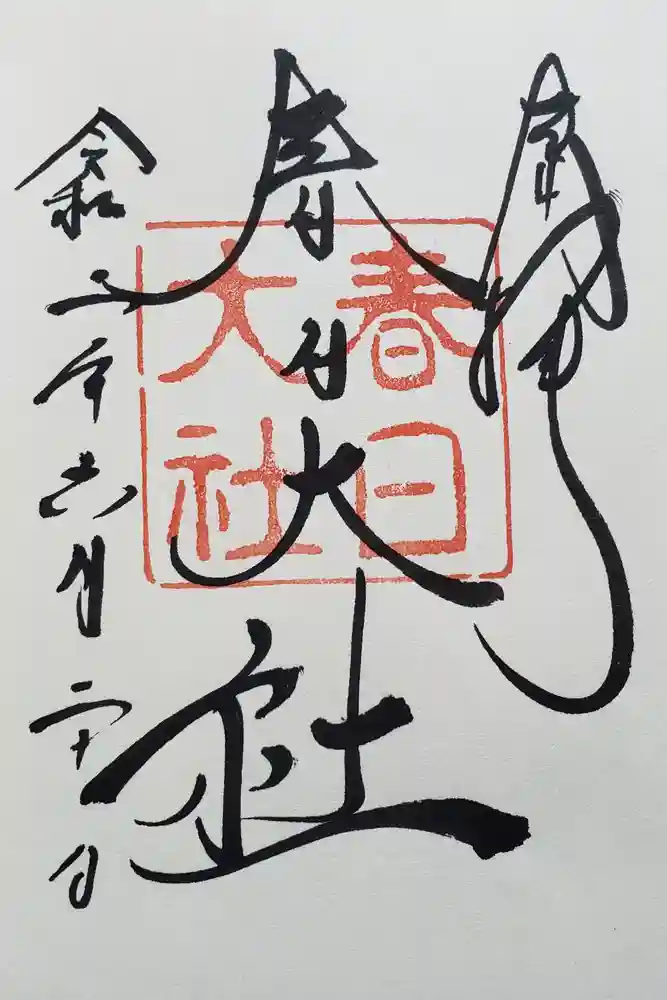 奉拝
春日大社
令和二年六月二十日
春日
大社